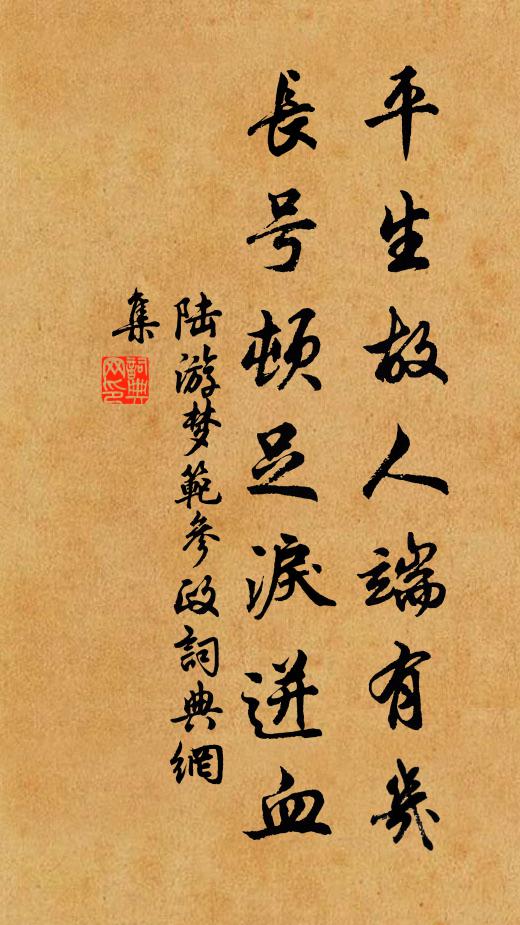 平生故人端有几
长号顿足淚迸血
陆游梦範參政詞典網
集
詞典
网印